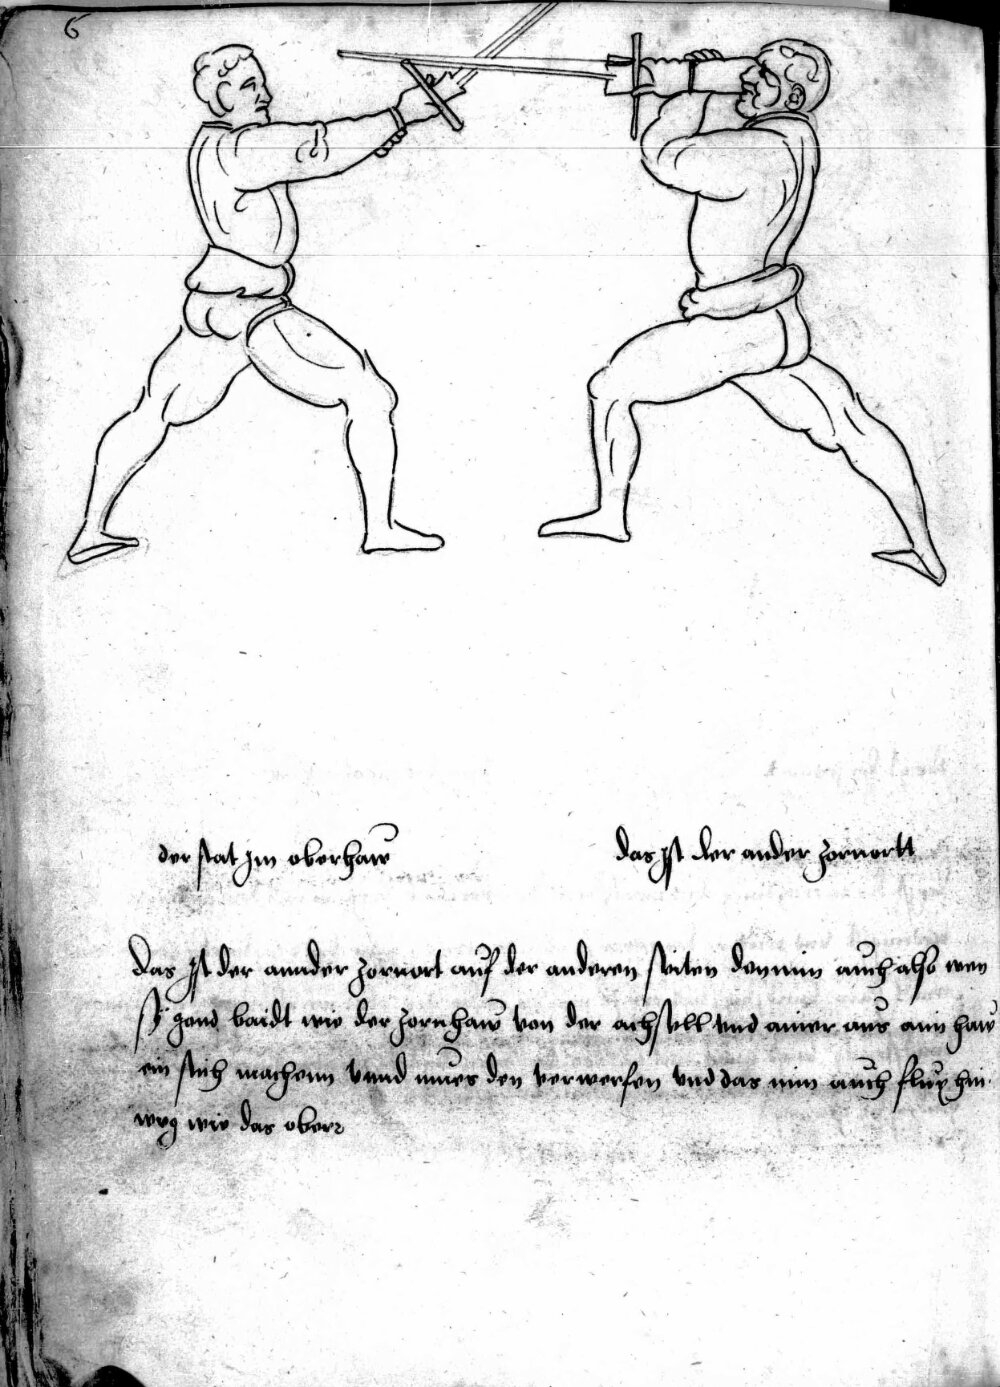 6
der stat Im oberhaw
das Ist der ander zornortt
Das Ist der annder zornort auf der anderen seiten den nim auch also wen
sy gend baidt wie der zornhaw von der achsell vnd ainer aus aim haw
ein stich machenn vnnd mues den verwerfen vnd das nim auch flux hin
weg wie das ober